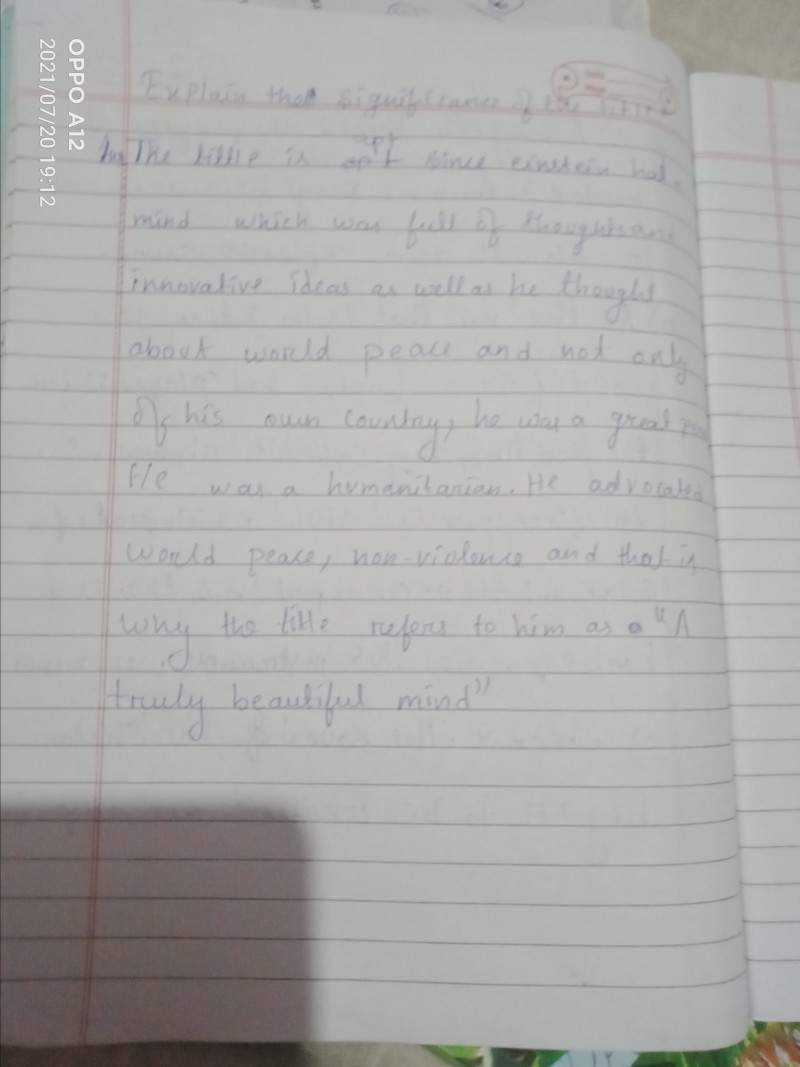 OPPO A12
2021/07/20 19:12
Explain the significance of the title
The tittle is apt apt since einstein had a
mind which was full of thoughts and
innovative ideas as well as he thought
about world peace and not only
of his own country, he was a great
He was a humanitarian. He advocated
world peace, non-violence and that is
why the title refers to him as a "A
truly beautiful mind"